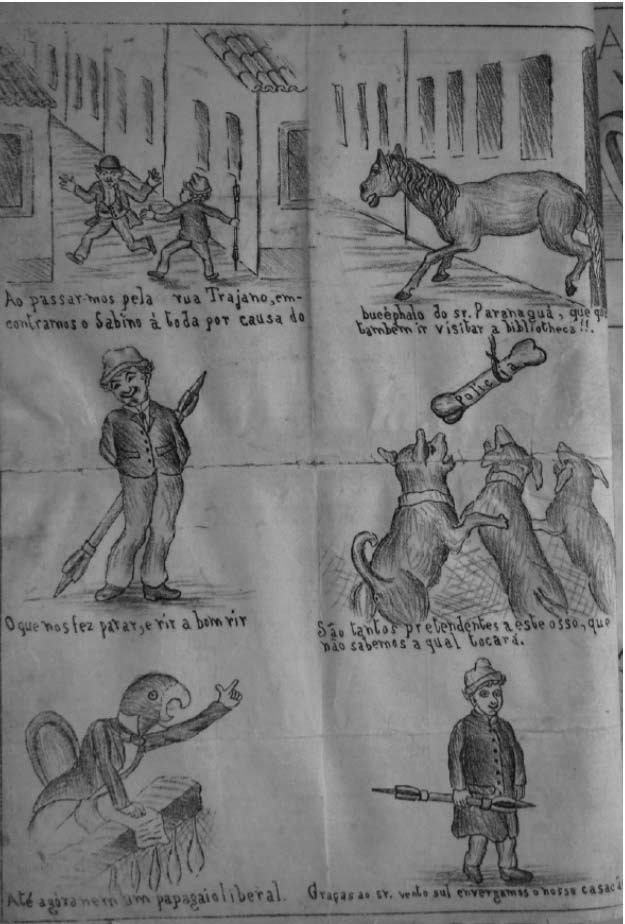 Ao passar-mos pela rua Trajano, em-
contramos o Sabino á toda por causa do
bucéphalo do sr. Paranaguá, que
tambem ir visitar a bibliotheca!!.
O que nos fez parar, e rir a bom rir
Police a
São tantos pretendentes a este osso, que
não sabemos a qual tocará.
Até agóra nem um papagaio liberal.
Graças ao sr. vento sul envergamos o nosso
A